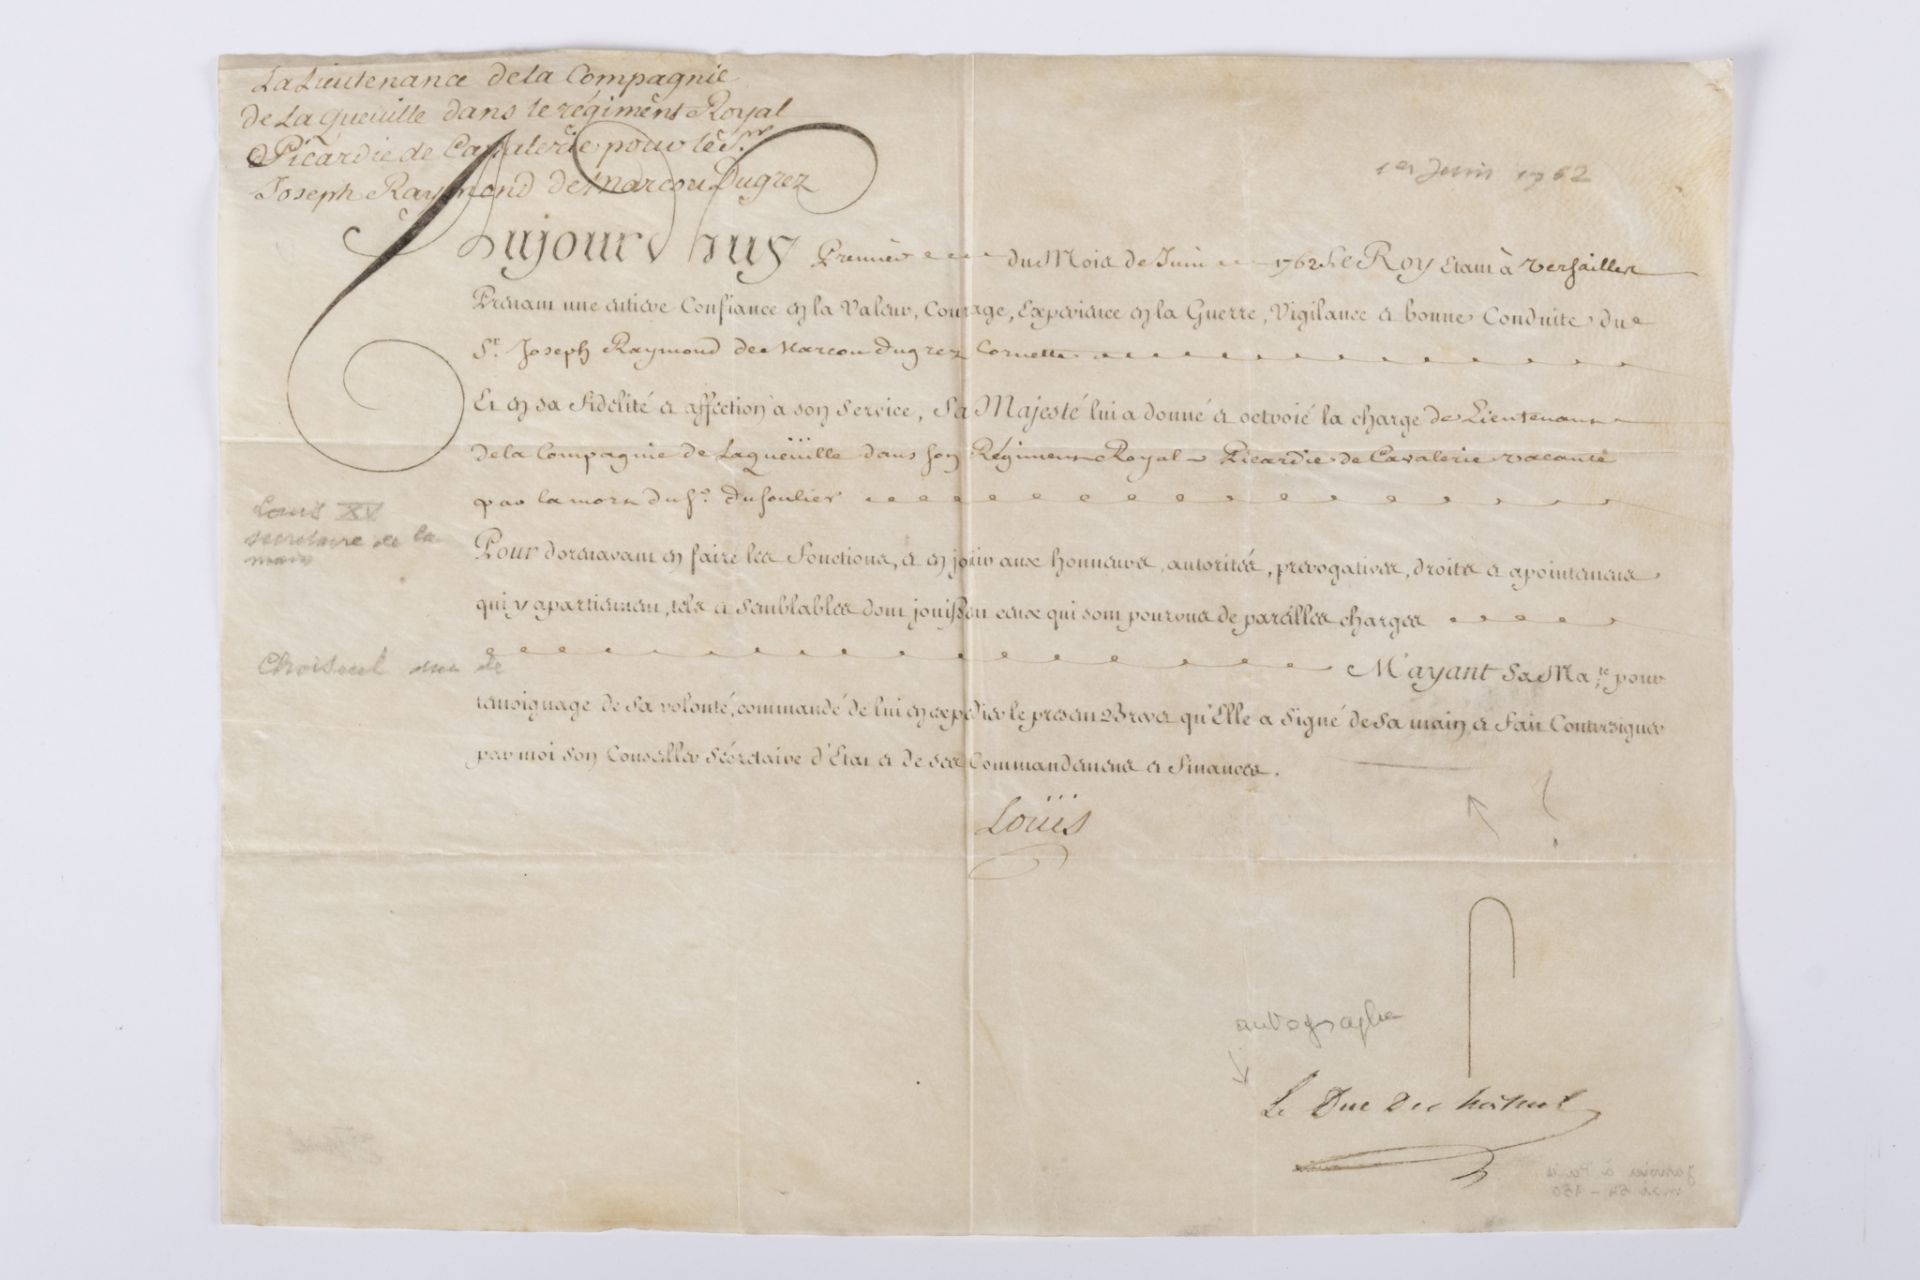 La Lieutenance de la Compagnie
de La queuille dans le régiment Royal
Picardie de Cavalerie pour le Sr.
Joseph Raymond de Marcou Dugrez
1er Juin 1762
Aujourd'huy Premier du Mois de Juin 1762 Le Roy Etant à Versailles
Prenant une entiere Confiance en la Valeur, Courage, Experience en la Guerre, Vigilance et bonne Conduite du
Sr. Joseph Raymond de Marcou Dugrez Cornette
Et en sa fidelité et affection à son Service, Sa Majesté lui a donné et octroié la charge de Lieutenant
de la Compagnie de Laqueüille dans son Régiment Royal Picardie de Cavalerie vacante
par la mort du Sr. Dusoulier
Louis XV
secretaire de la
main
Pour dorenavant en faire les Fonctions, et en jouir aux honneurs, autorités, prerogatives, droits et apointemens
qui y apartienent, tels et semblables dont jouissent ceux qui sont pourvus de pareilles charges
Choiseul
M'ayant Sa Ma.té pour
temoignage de sa volonté, commandé de lui en expedier le present Brevet qu'Elle a Signé de Sa main et fait Contresigner
par moi son Conseiller Sécretaire d'Etat et de ses Commandemens et Finances.
Loüis
?
autographe
Le Duc De choiseul